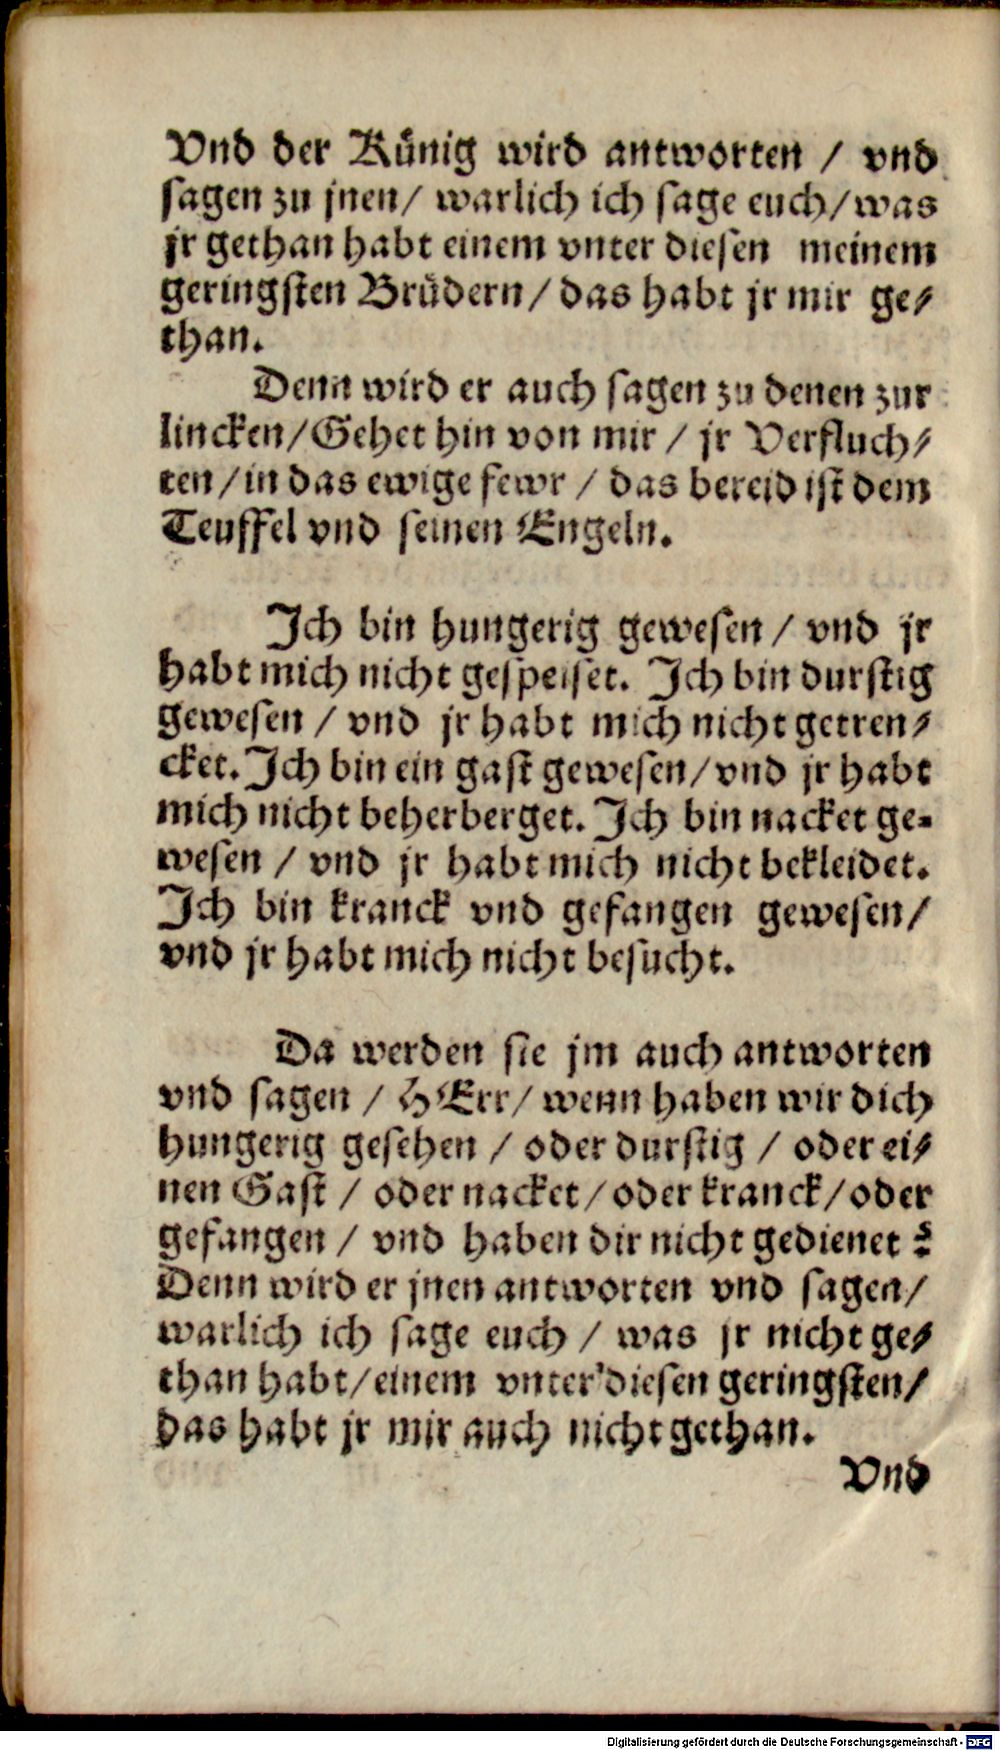 Vnd der Künig wird antworten / vnd
sagen zu jnen/ warlich ich sage euch/was
jr gethan habt einem vnter diesen meinem
geringsten Brüdern/ das habt jr mir ge-
than.
Denn wird er auch sagen zu denen zur
lincken/Gehet hin von mir / jr Verfluch-
ten/in das ewige fewr / das bereid ist dem
Teuffel vnd seinen Engeln.
Ich bin hungerig gewesen / vnd jr
habt mich nicht gespeiset. Ich bin durstig
gewesen / vnd jr habt mich nicht getren-
cket. Ich bin ein gast gewesen/vnd jr habt
mich nicht beherberget. Ich bin nacket ge-
wesen / vnd jr habt mich nicht bekleidet.
Ich bin kranck vnd gefangen gewesen/
vnd jr habt mich nicht besucht.
Da werden sie jm auch antworten
vnd sagen / HErr/ wenn haben wir dich
hungerig gesehen / oder durstig / oder ei-
nen Gast / oder nacket/oder kranck/oder
gefangen / vnd haben dir nicht gedienet ?
Denn wird er jnen antworten vnd sagen/
warlich ich sage euch / was jr nicht ge-
than habt/einem vnter diesen geringsten/
das habt jr mir auch nicht gethan.
Vnd
Digitalisierung gefördert durch die Deutsche Forschungsgemeinschaft - DFG